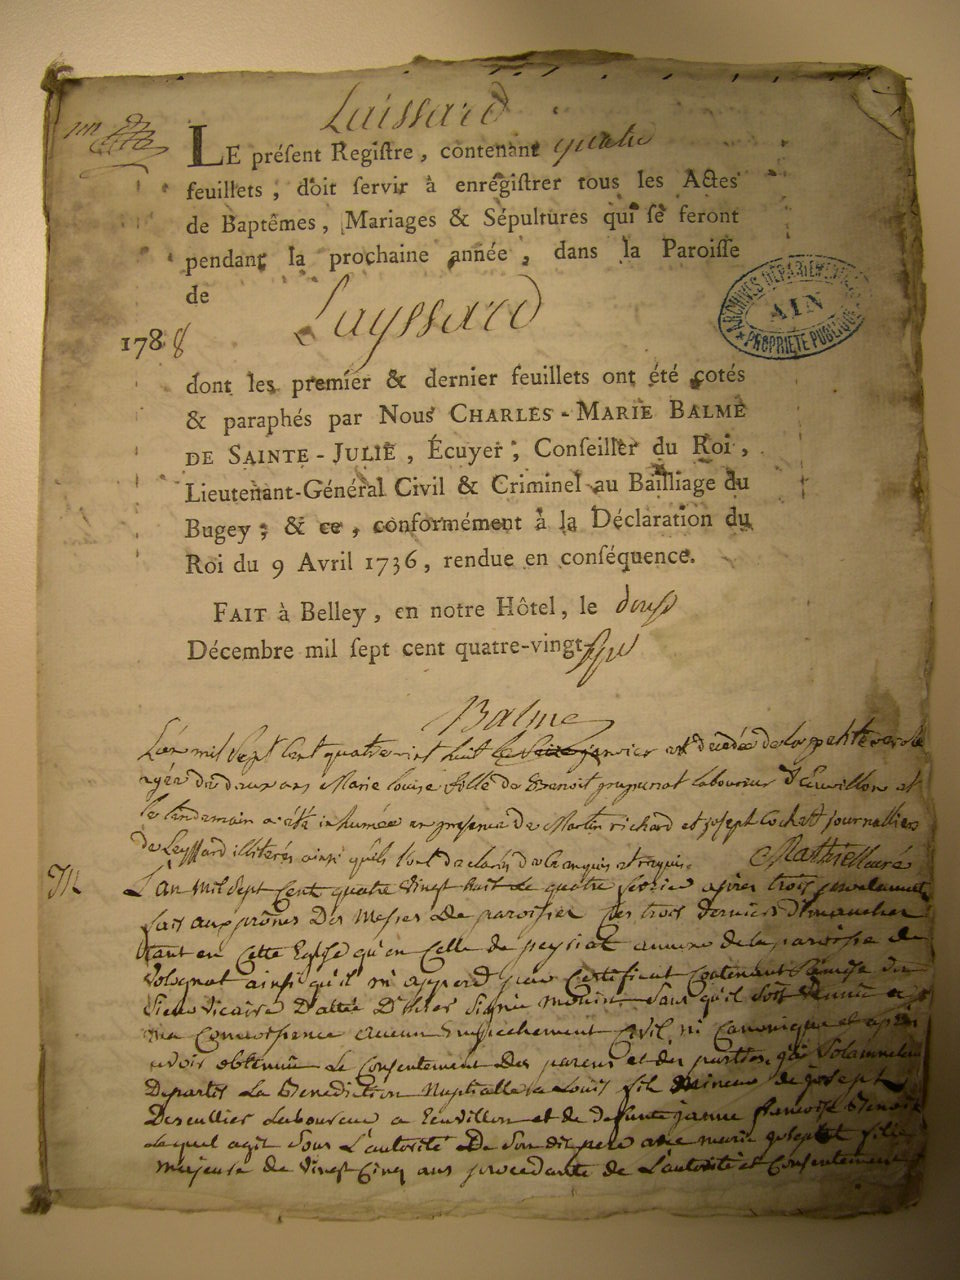 Laissard
LE préſent Regiſtre, contenant quatre
feuillets, doit ſervir à enrégiſtrer tous les Actes
de Baptêmes, Mariages & Sépultures qui ſe feront
pendant la prochaine année, dans la Paroiſſe
de Layssard
ARCHIVES DÉPARTEMENTALES
AIN
PROPRIÉTÉ PUBLIQUE
1788
dont les premier & dernier feuillets ont été cotés
& paraphés par Nous CHARLES-MARIE BALME
DE SAINTE-JULIE, Écuyer, Conſeiller du Roi,
Lieutenant-Général Civil & Criminel au Bailliage du
Bugey; & ce, conformément à la Déclaration du
Roi du 9 Avril 1736, rendue en conſéquence.
FAIT à Belley, en notre Hôtel, le douse
Décembre mil ſept cent quatre-vingt-sept
Balme
L'an mil sept cent quatre vint huit le janvier est décédée de la petite verole
agée de deux ans Marie louise fille de Benoit laboureur et
le lendemain a été inhumée en presence de Martin richard et joseph Cochet journalliers
de Leyssard illiterés ainsi qu'ils l'ont declaré de ce enquis et requis. Mathieu curé
M
L'an mil sept Cent quatre vingt huit le quatre fevrier après trois
fais aux prônes Des Messes de paroisse les trois derniers Dimanches
tant en Cette Eglise qu'en Celle de peyriat annexe de la paroisse de
Volognat ainsi qu'il m'apperd par Certificat Contenant Remise du
Sieur vicaire signé sans qu'il soit venue a
ma Connoissance aucun Empechement Civil ni Canonique et après
avoir obtenu le Consentement Des parens et des parties j'ai Solamnelement
Departis La Benediction Nuptialle a Louis fils mineur de joseph
laboureur a et de defunte janne françoise Benoit
lequel agit sous L'autorité De Son dit pere avec marie josephte fille
majeure de vingt Cinq ans procedante de L'autorité et Consentement